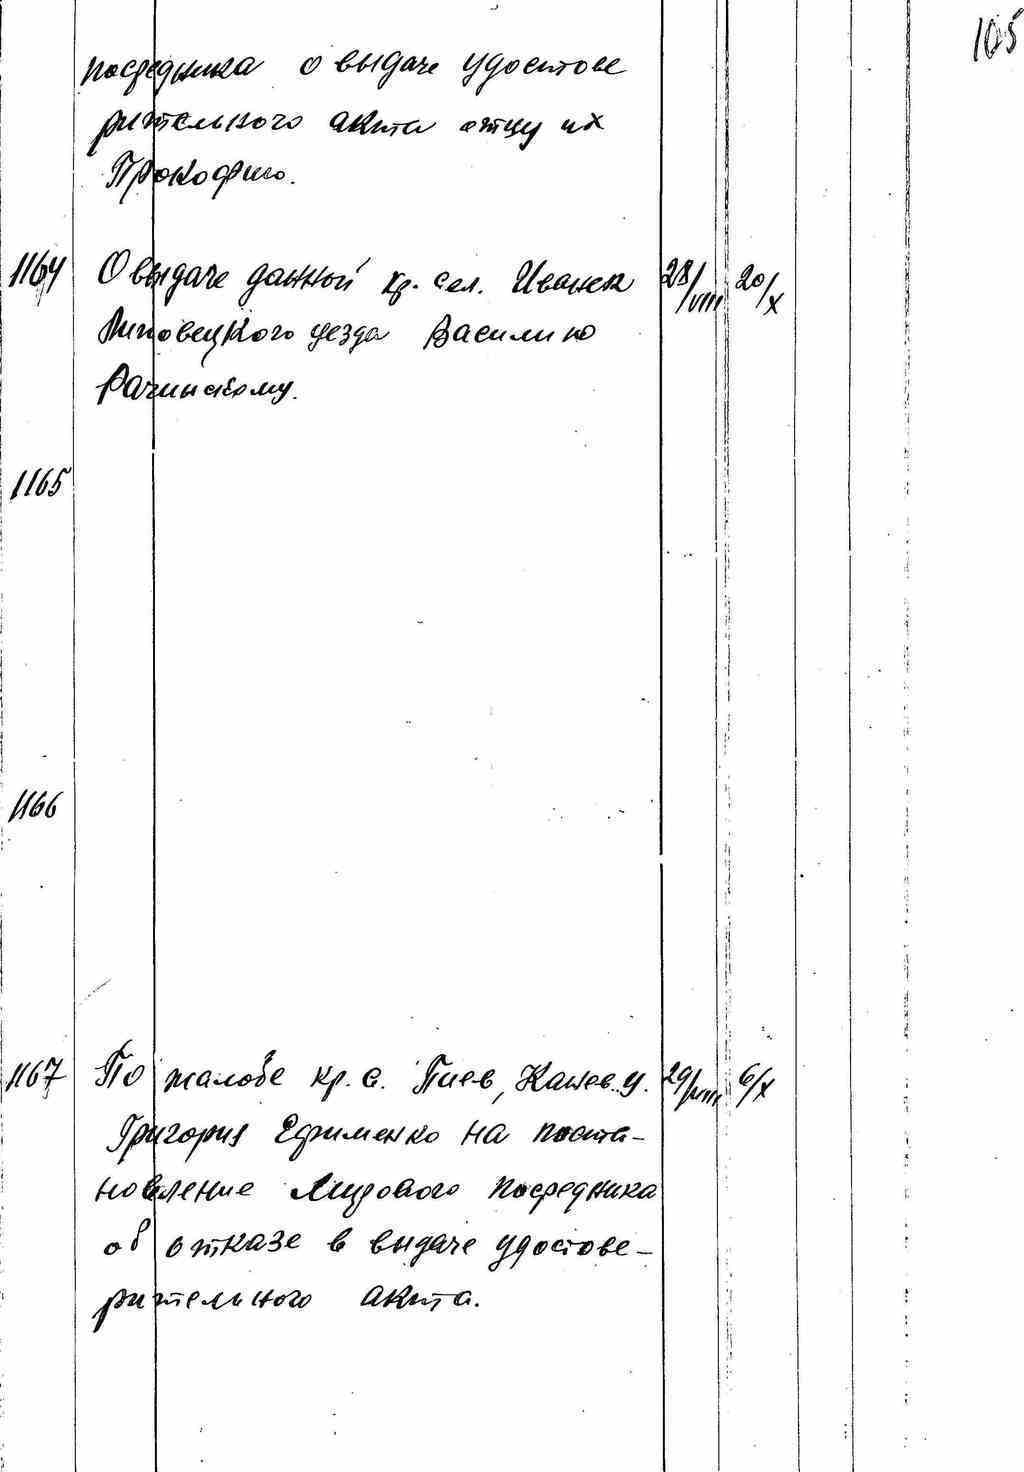 105
посредника о выдаче удостове
рительного акта отцу их
Прокофию.
1164 О выдаче данной кр. сел. Иваньк 28/VIII 20/X
Липовецкого уезда Василию
Рачинскому.
1165
1166
1167 По жалобе кр. с. Пиев, Канев. у. 29/VIII 6/X
Григория Ефименко на поста-
новление Мирового посредника
об отказе в выдаче удостове-
рительного акта.